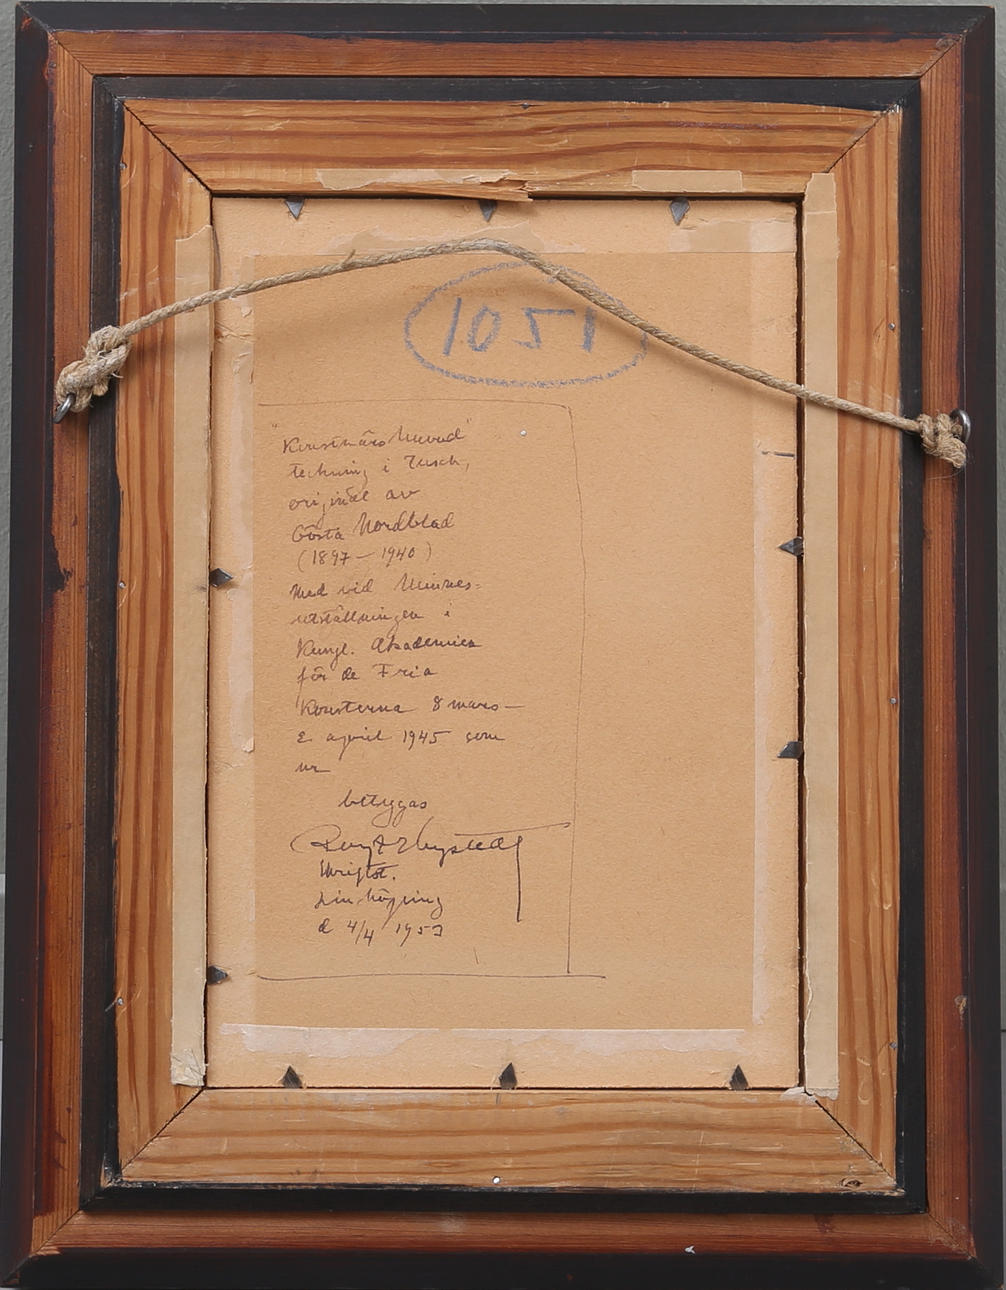 1051
"Konstnärshuvud"
teckning i Tusch,
original av
Gösta Nordblad
(1897 — 1940)
Med vid Minnes=
utställningen i
Kungl. Akademien
för de Fria
Konsterna 8 mars —
2 april 1945 som
nr
betygas
Linköping
d 4/4 1953